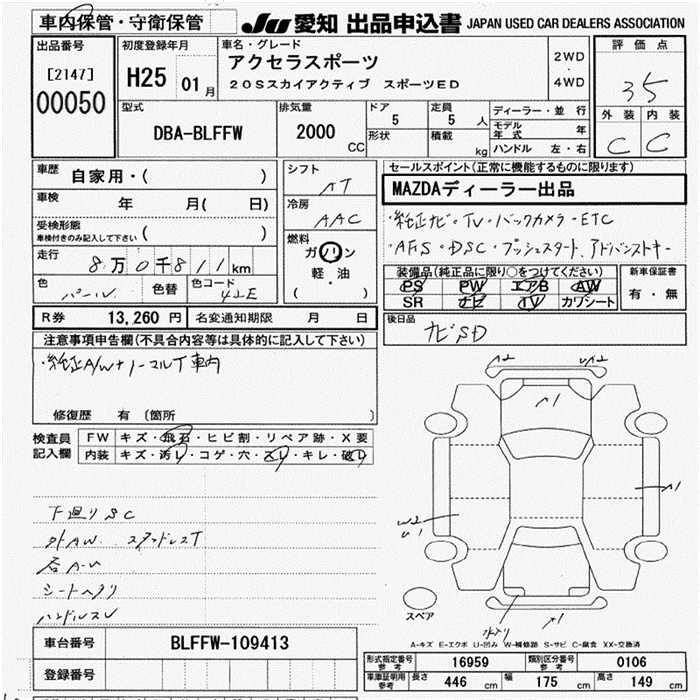 車内保管・守衛保管
JU 愛知 出品申込書 JAPAN USED CAR DEALERS ASSOCIATION
出品番号
[2147]
00050
初度登録年月
H25 01 月
車名・グレード
アクセラスポーツ
20Sスカイアクティブ スポーツED
2WD
・
4WD
評価点
35
外装 内装
C C
型式
DBA-BLFFW
排気量
2000
CC
ドア
5
定員
5 人
形状
積載
kg
ディーラー・並行
モデル年式 年
ハンドル 左・右
車歴
自家用・( )
車検
年 月( 日)
受検形態
車検付きのみ記入して下さい ( )
走行
8万0千811km
色
パール
色替
色コード
42E
シフト
AT
冷房
AAC
燃料
ガソリン
・
軽・油
( )
セールスポイント(正常に機能するものに限ります)
MAZDAディーラー出品
・純正ナビ・TV・バックカメラ・ETC
・AFS・DSC・プッシュスタート、アドバンストキー
装備品(純正品に限り○をつけてください)
PS PW エアB AW
SR ナビ TV カワシート
新車保証書
有・無
R券 13,260円 名変通知期限 月 日
後日品
ナビSD
注意事項申告欄(不具合内容等は具体的に記入して下さい)
・純正A/W+ノーマルT車内
修復歴 有 〔箇所 〕
検査員
記入欄
FW キズ・飛石・ヒビ割・リペア跡・X要
内装 キズ・汚レ・コゲ・穴・スレ・キレ・破レ
下廻りSC
外AW. スタッドレスT
シートヘタリ
ハンドルスレ
A2
A1
A1
W2
U1
A1
スペア
A-キズ E-エクボ U-凹み W-補修跡 S-サビ C-腐食 XX-交換済
車台番号 BLFFW-109413
登録番号
形式指定番号 参考 16959 類別区分番号 参考 0106
車庫証明用 参考 長さ 446 cm 幅 175 cm 高さ 149 cm